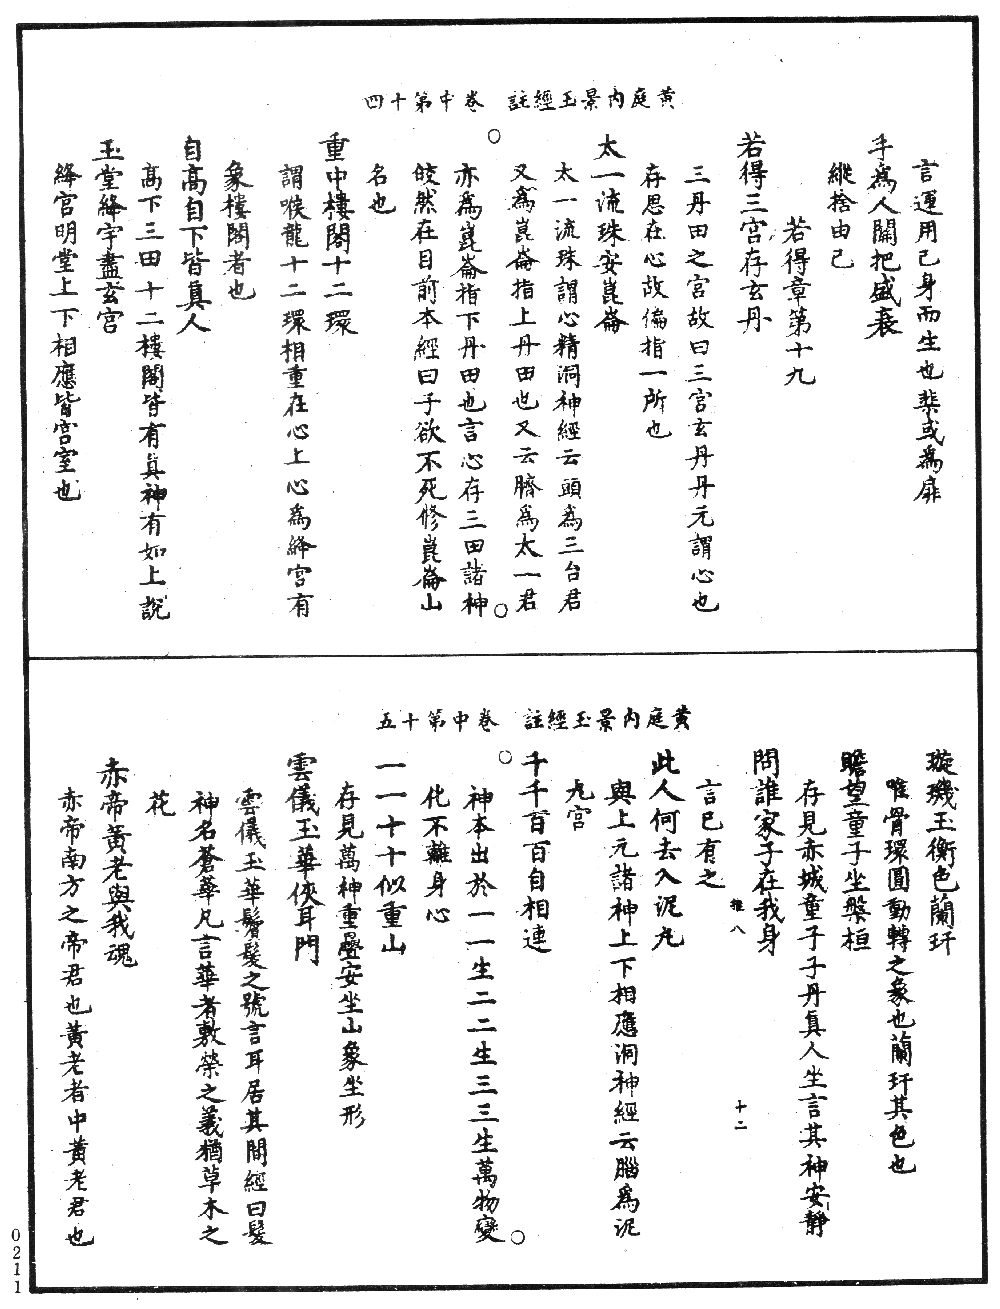 黃庭內景玉經註　卷中第十四
言運用己身而生也棐或為扉
手為人關把盛衰
縱捨由己
若得章第十九
若得三宮存玄丹
三丹田之宮故曰三宮玄丹丹元謂心也
存思在心故偏指一所也
太一流珠安崑崙
太一流珠謂心精洞神經云頭為三台君
又為崑崙指上丹田也又云臍為太一君
亦為崑崙指下丹田也言心存三田諸神
皎然在目前本經曰子欲不死修崑崙山
名也
重中樓閣十二環
謂喉龍十二環相重在心上心為絳宮有
象樓閣者也
自高自下皆真人
高下三田十二樓閣皆有真神有如上說
玉堂絳宇盡玄宮
絳宮明堂上下相應皆宮室也
黃庭內景玉經註　卷中第十五
璇璣玉衡色蘭玕
喉骨環圓動轉之象也蘭玕其色也
瞻望童子坐槃桓
存見赤城童子子丹真人坐言其神安靜
問誰家子在我身
言已有之
推八
十二
此人何去入泥丸
與上元諸神上下相應洞神經云腦為泥
丸宮
千千百百自相連
神本出於一一生二二生三三生萬物變
化不離身心
一一十十似重山
存見萬神重疊安坐山象坐形
雲儀玉華俠耳門
雲儀玉華鬢髮之號言耳居其間經曰髮
神名蒼華凡言華者敷榮之義猶草木之
花
赤帝黃老與我魂
赤帝南方之帝君也黃老者中黃老君也
0211